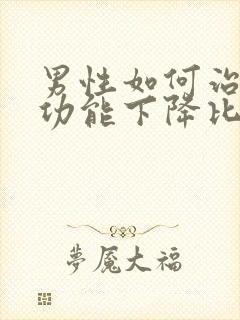 男性如何治
功能下降比
夢魇大福